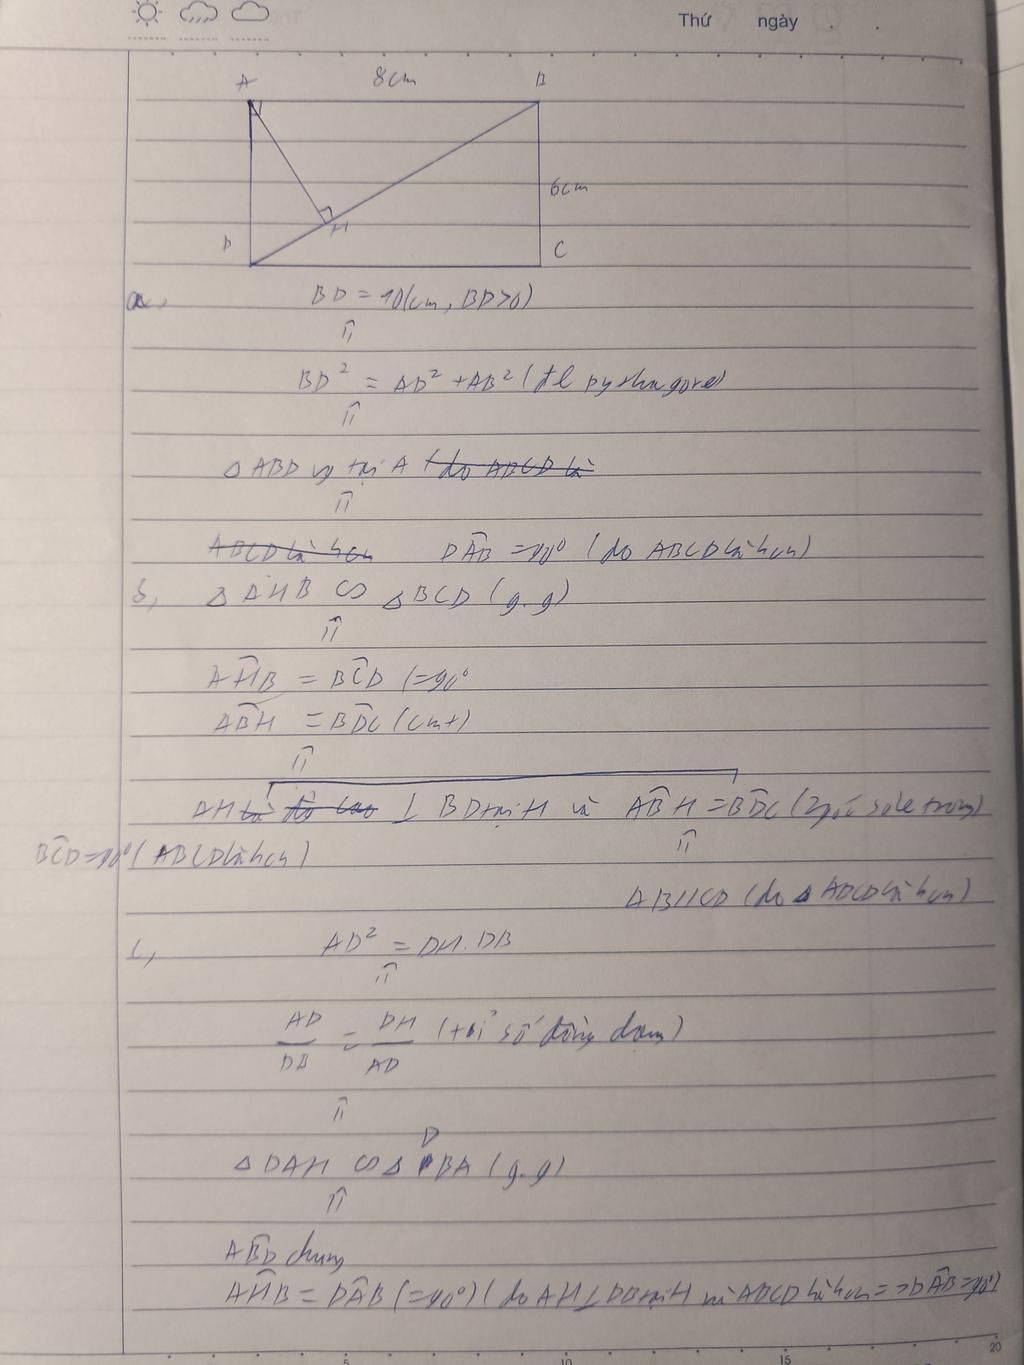 Thứ ngày . .
A 8cm B
6cm
D H C
a, BD = 10(cm, BD>0)
⇑
BD² = AD² + AB² (đl pythagore)
⇑
△ ABD vg tại A (do ABCD là
⇑
ABCD là hcn DÂB = 90° (do ABCD là hcn)
b, △ AHB ∽ △ BCD (g.g)
⇑
AĤB = BĈD (=90°
AB̂H = BD̂C (cmt)
⇑
AH là đồ cao ⊥ BD tại H và AB̂H = BD̂C (2 góc sole trong)
BĈD = 90° (ABCD là hcn) ⇑
AB//CD (do ABCD là hcn)
c, AD² = DH.DB
⇑
AD/DB = DH/AD (tỉ số đồng dạng)
⇑
△ DAH ∽ △ DBA (g.g)
⇑
AB̂D chung
AĤB = DÂB (=90°) (do AH⊥DB tại H và ABCD là hcn => DÂB = 90°)
5 10 15 20